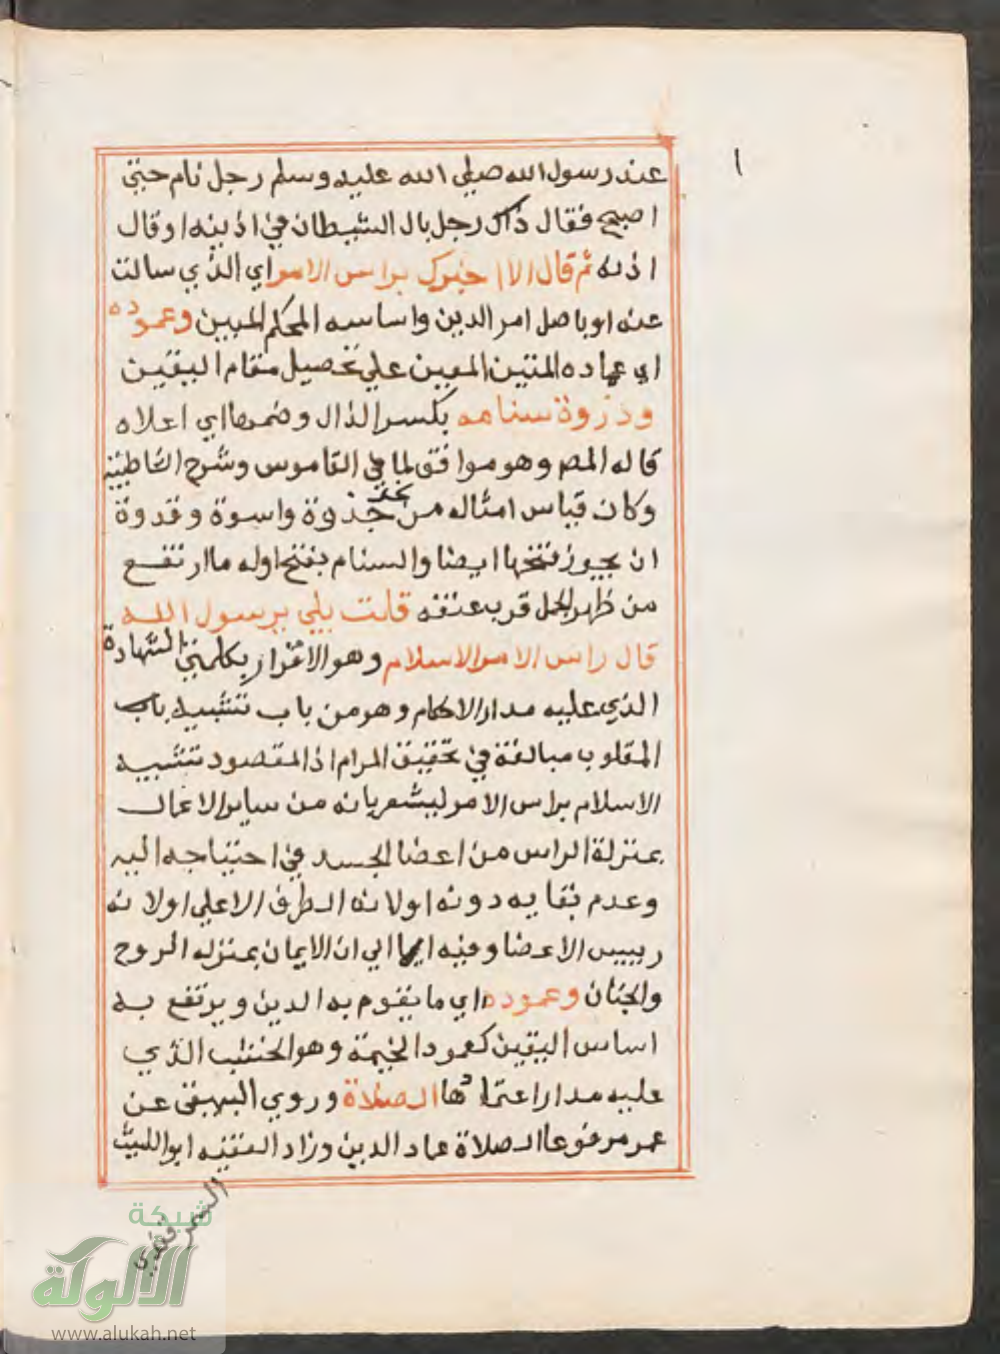 ١
عند رسول الله صلي الله عليه وسلم رجل نام حتي
اصبح فقال ذاك رجل بال الشيطان في اذنيه او قال
اذنه ثم قال الا اخبرك براس الامر اي الذي سالت
عنه او باصل امر الدين واساسه المحكم المبين وعموده
اي عماده المتين المعين علي تحصيل مقام اليقين
وذروة سنامه بكسر الذال وضمها اي اعلاه
قاله المصـ وهو موافق لما في القاموس وشرح الشاطبية
وكان قياس امثاله من نحو جذوة واسوة وقدوة
ان يجوز فتحها ايضا والسنام بفتح اوله ما ارتفع
من ظهر الجمل قرب عنقه قلت بلي يرسول الله
قال راس الامر الاسلام وهو الاقرار بكلمتي الشهادة
الذي عليه مدار الاحكام وهو من باب تشبيه باب
المقلوب مبالغة في تحقيق المرام اذ المقصود تشبيه
الاسلام براس الامر ليشعر بانه من ساير الاعمال
بمنزلة الراس من اعضا الجسد في احتياجه اليه
وعدم بقايه دونه او لانه الطرف الاعلي او لانه
رييس الاعضا وفيه ايما الي ان الايمان بمنزله الروح
والجنان وعموده اي ما يقوم به الدين ويرتفع به
اساس اليقين كعمود الخيمة وهو الخشب الذي
عليه مدار اعتمادها الصلاة وروي البيهقي عن
عمر مرفوعا الصلاة عماد الدين وزاد الفقيه ابو الليث
السمرقندي
شبكة
الألوكة
www.alukah.net